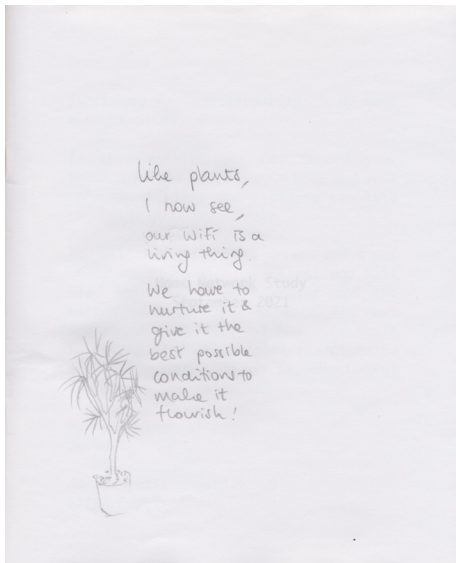 Like plants,
I now see,
our WiFi is a
living thing.
We have to
nurture it &
give it the
best possible
conditions to
make it
flourish!
Study
2021